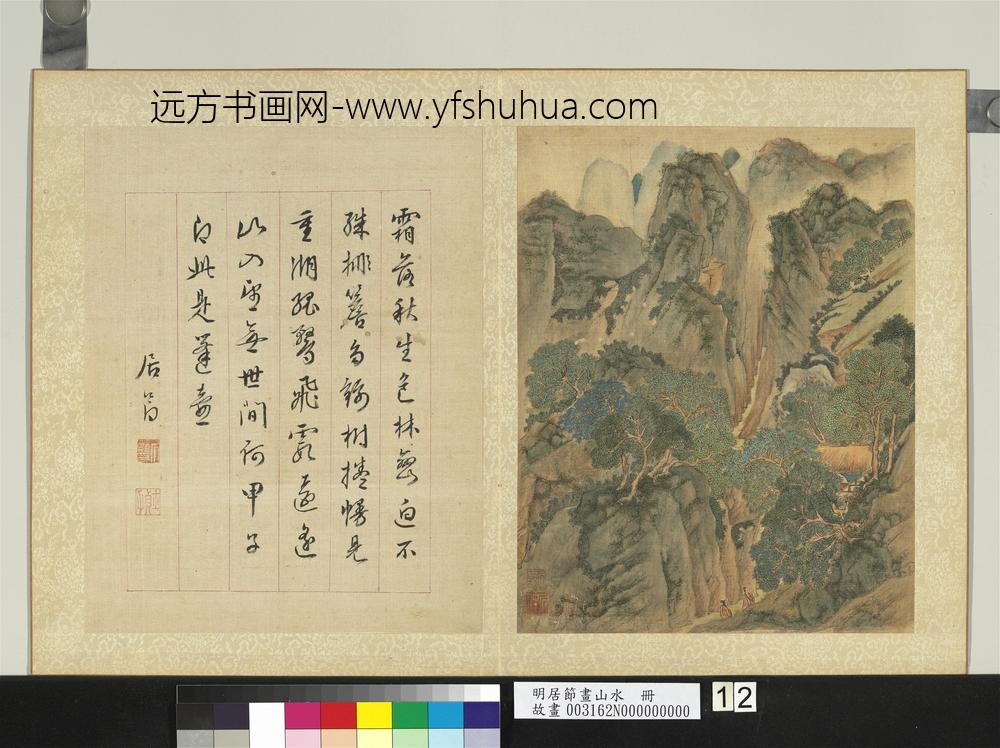 远方书画网-www.yfshuhua.com
霜落秋生色林巒迥不
殊排簷多錦樹捲幔見
重湖

世間何甲子
即此是蓬壺
居節
明居節畫山水 冊
故畫 003162N000000000
12